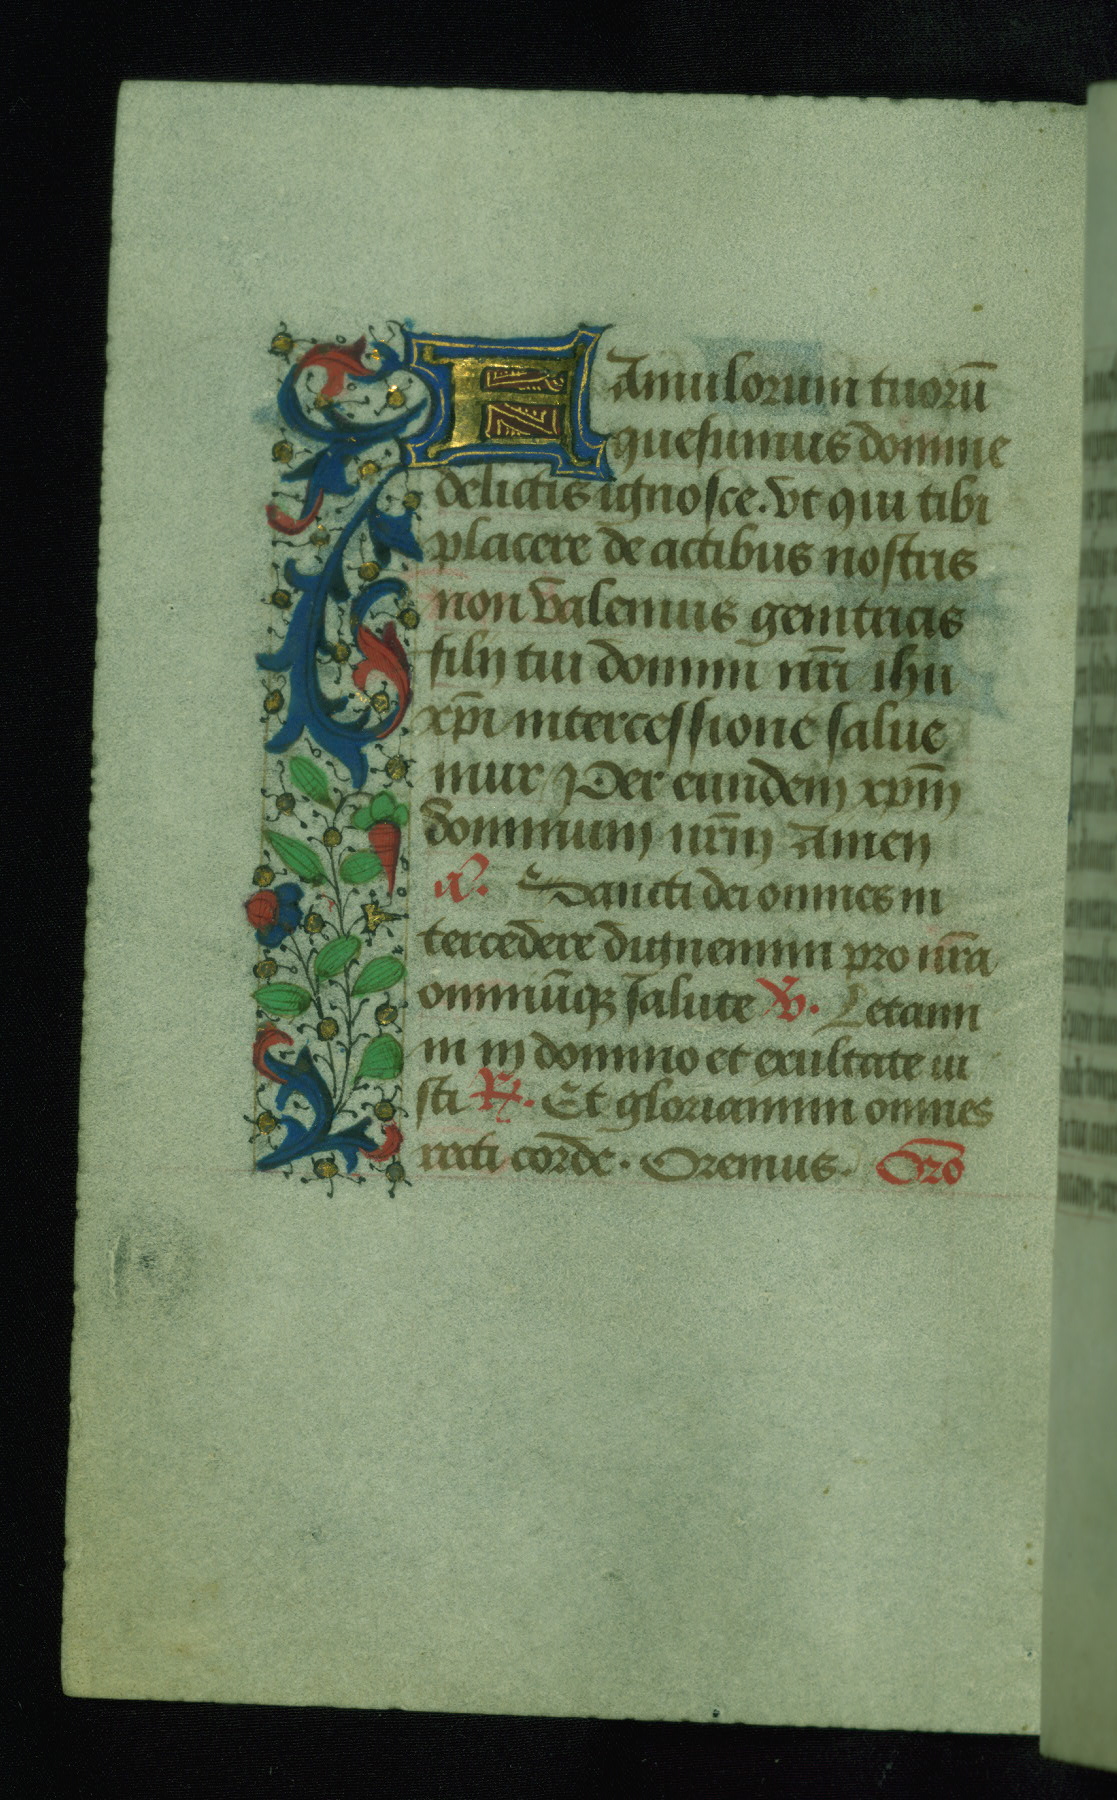 FAmulorum tuoru̅
quesumus domine
delictis ignosce. vt qui tibi
placere de actibus nostris
non valemus genitricis
filij tui domini nr̅i ihu
xp̅i intercessione salue
mur Per eundem xpm̅
dominum nr̅m Amen
a̅. Sancti dei omnes in
tercedere dignemini pro nr̅a
omniu̅qꝫ salute v̅. Letami
ni in domino et exultate iu
sti ℟. Et gloriamini omnes
recti corde. Oremus. Or̅o